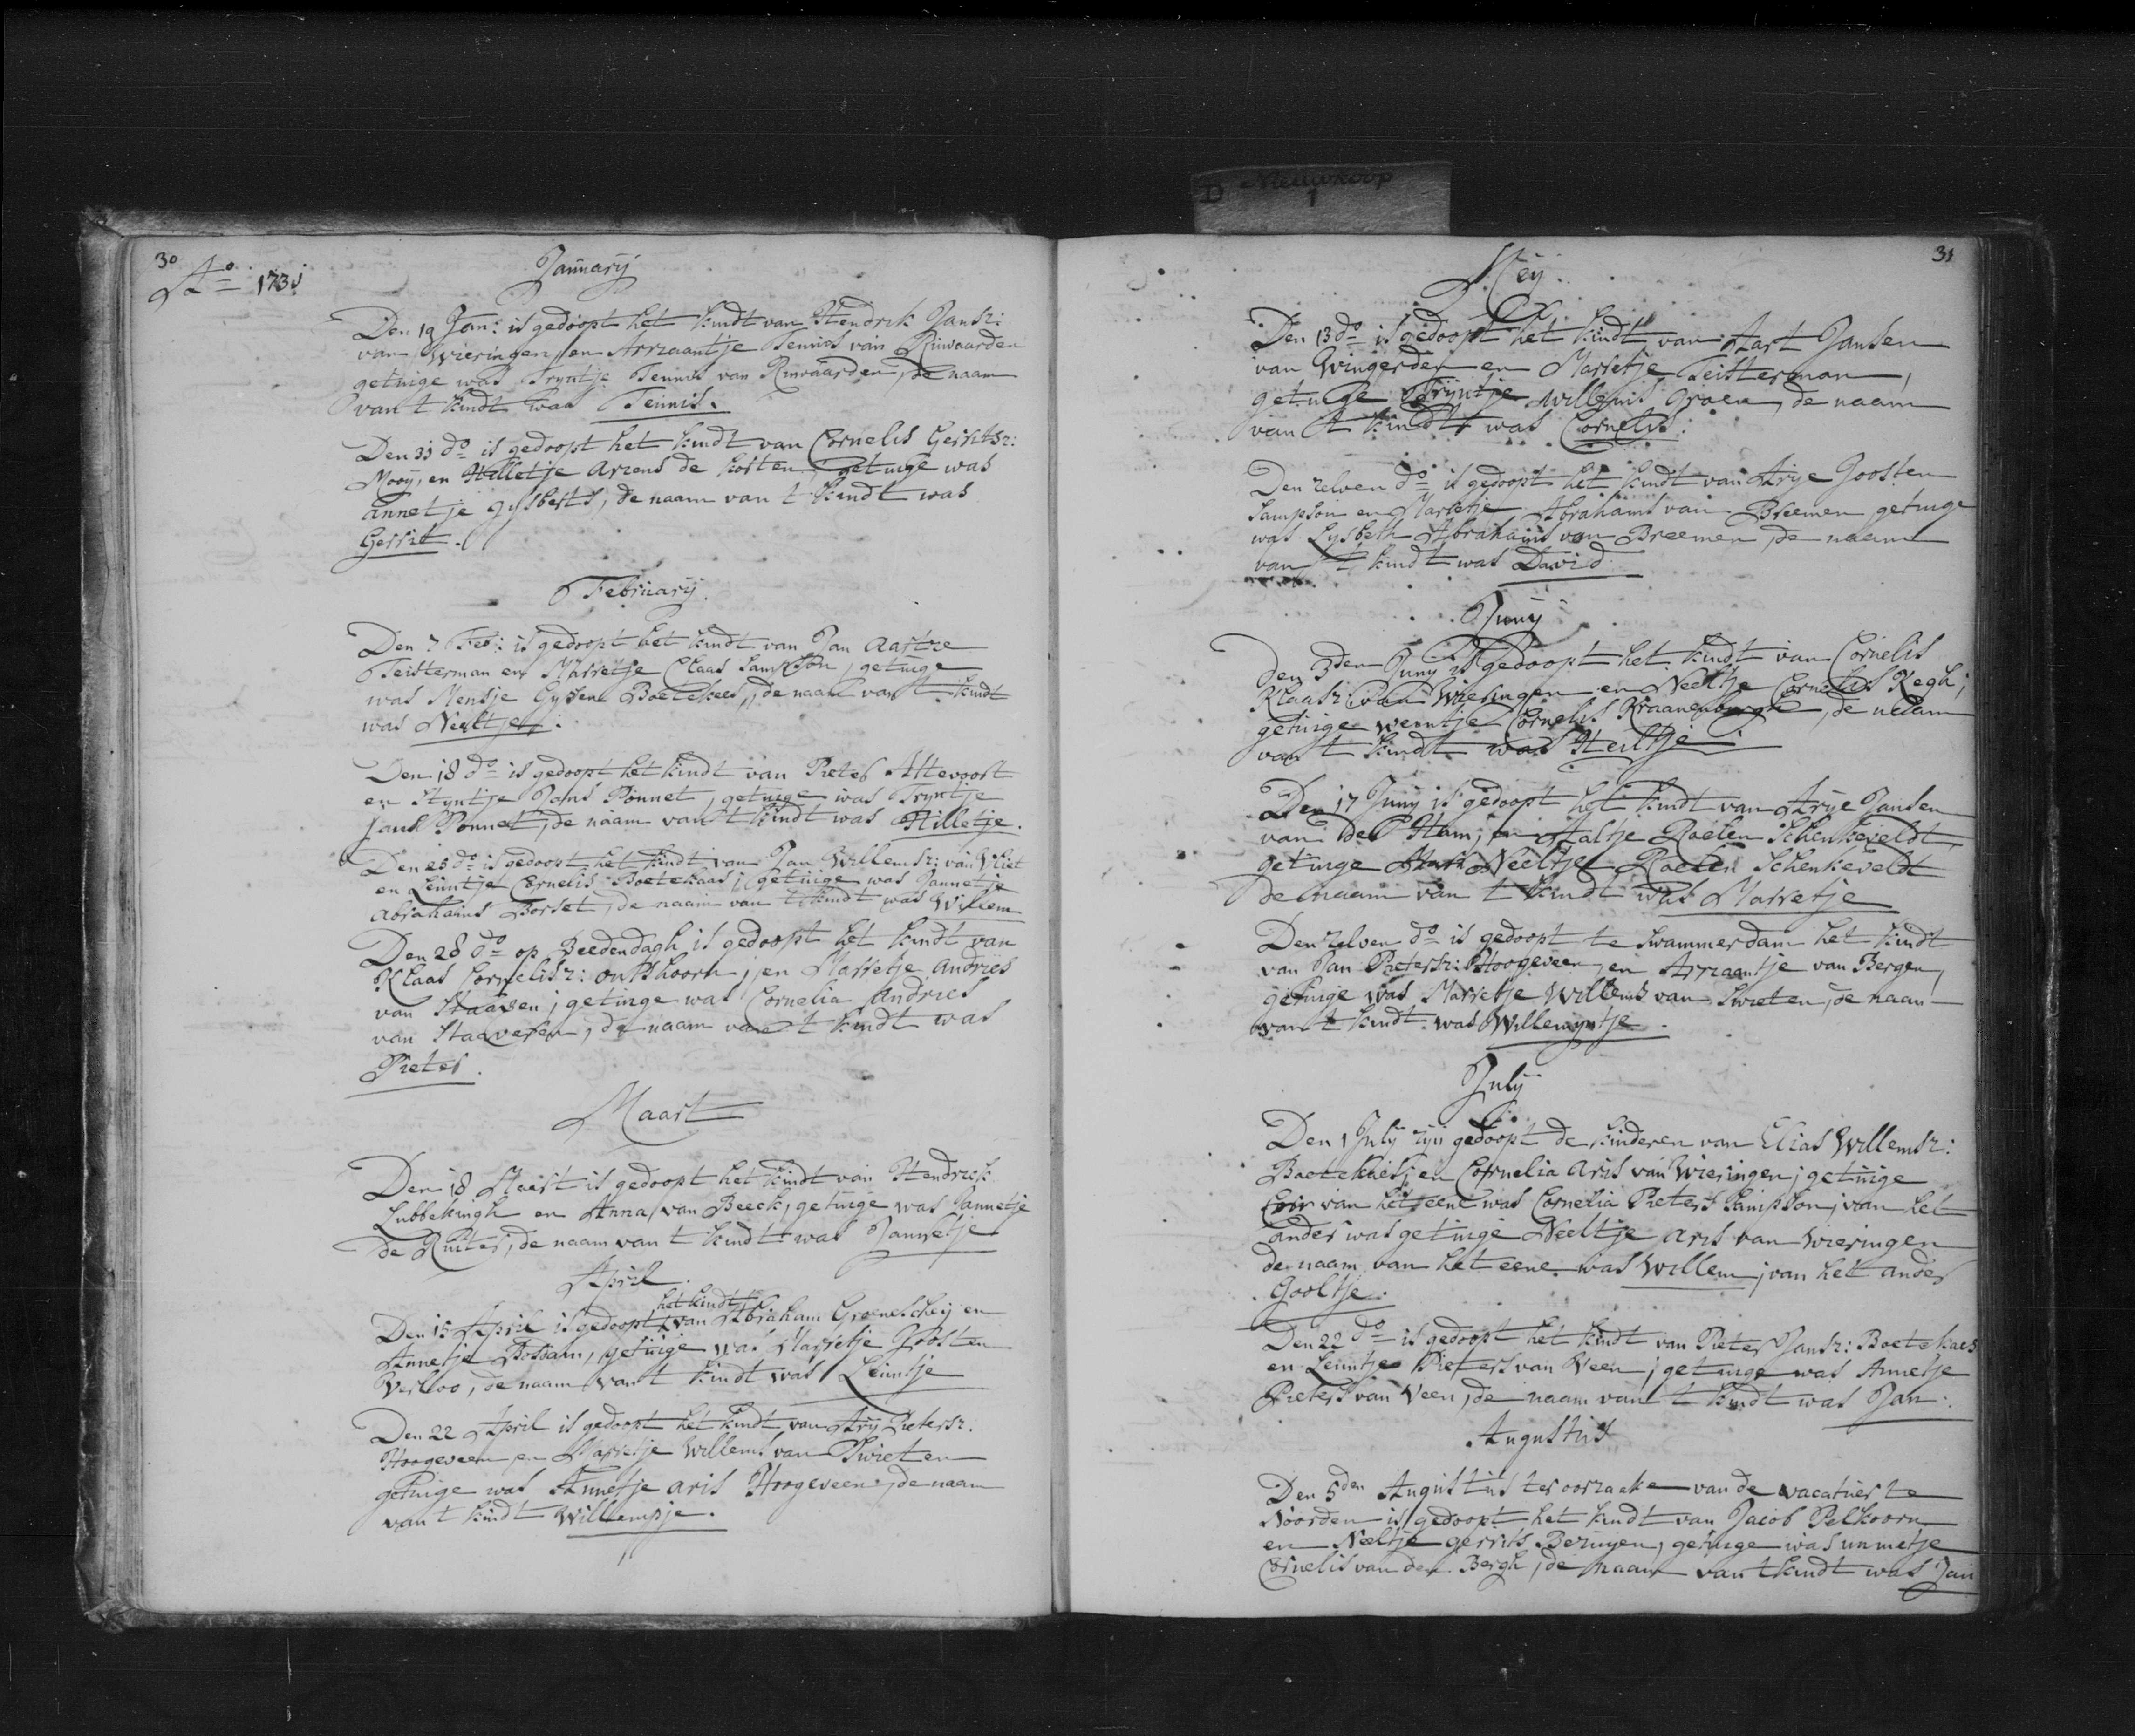 D Nieuwkoop
1
30
Ao 1731
January
Den 19 Jan: is gedoopt het kindt van Hendrik Jansz:
van Wieringen, en Arriaantje Teunis van Rinwaarden
getuige was Tryntje Teunis van Rinwaarden, de naam
van t kindt was Teunis.
Den 31 do is gedoopt het kindt van Cornelis Gerritsz:
Mooy, en Hilletje Ariens de Kosten, getuige was
annetje gysberts, de naam van t kindt was
Gerrit.
February.
Den 7 Feb: is gedoopt het kindt van Jan Aartze
Teisterman en Marretje Claas Sampson, getuige
was Mensje Boetekees, de naam van t kindt
was Neeltje.
Den 18 do is gedoopt het kindt van Pieter Attevoort
en Styntje Jans Ponnet, getuige was Tryntje
Jans Ponnet, de naam van t kindt was Hilletje.
Den 25 do is gedoopt het kindt van Jan Willemsz: van Vliet
en Leuntje Cornelis Boetekaas; getuige was Jannetje
Abrahams Borset, de naam van t kindt was Willem
Den 28 do op Beedendagh is gedoopt het kindt van
Klaas Cornelisz: outshoorn; en Marretje Andries
van Staaven; getuige was Cornelia Andries
van Staaveren, de naam van t kindt was
Pieter.
Maart
Den 18 Maart is gedoopt het kindt van Hendrick
Lubbekingh en Anna van Beeck, getuige was Jannetje
de Ruiter, de naam van t kindt was Jannetje
April.
het kindt
Den 15 April is gedoopt van Abraham Groenescheij en
Annetje Bossam, getuige was Marretje Joosten
Verloo, de naam van t kindt was Leuntje
Den 22 April is gedoopt het kindt van Arij Pietersz.
Hoogeveen en Marretje Willems van Swieten
getuige was Annetje aris Hoogeveen, de naam
van t kindt Willempje.
31
Meij.
Den 13 do is gedoopt het kindt van Aart Jansen
van Wingerden en Marretje Teisterman,
getuige Tryntje Willems Groen, de naam
van t kindt was Cornelis.
Den zelven do is gedoopt het kindt van Arije Joosten
Sampson en Marretje Abrahams van Breemen getuige
was Lysbeth Abrahams van Breemen, de naam
van t kindt was David
Juny
Den 3den Juny is gedoopt het kindt van Cornelis
Klaasz: van Wieringen en Neeltje Cornelis Kegh;
getuige Weintje Cornelis Kraanenburgh, de naam
van t kindt was Heiltje.
Den 17 Juny is gedoopt het kindt van Arije Jansen
van der Ham; en Aaltje Roelen Schenkeveldt,
getuige Neeltje Roelen Schenkeveldt
de naam van t kindt was Marretje
Den zelven do is gedoopt te Swammerdam het kindt
van Jan Pietersz: Hoogeveen, en Arriaantje van Bergen,
getuige was Marretje Willems van Swieten, de naam
van t kindt was Willemyntje.
July
Den 1 July zyn gedoopt de kinderen van Elias Willemsz:
Boetekees; en Cornelia Aris van Wieringen; getuige
van het eene was Cornelia Pieters Sampson; van het
ander was getuige Neeltje Aris van Wieringen
de naam van het eene was Willem; van het ander
Gooltje.
Den 22 do is gedoopt het kindt van Pieter Jansz: Boetekaes
en Leuntje Pieters van Veen; getuige was Annetje
Pieters van Veen, de naam van t kindt was Jan.
Augustus
Den 5den Augustus ter oorzaeke van de vacatuer te
Noorden is gedoopt het kindt van Jacob Pelkoorn
en Neeltje gerrits Bezuyen, getuige was
Cornelis van den Bergh, de naam van t kindt was Jan